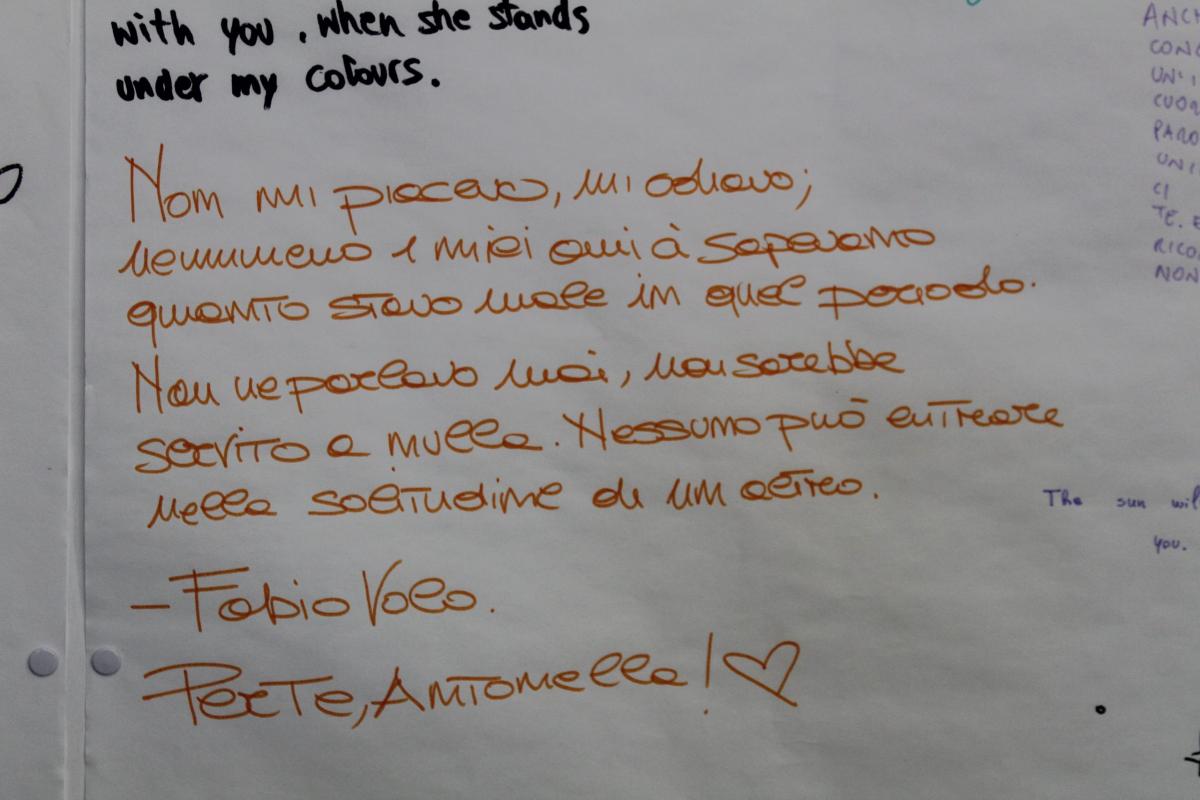 with you. When she stands
under my colours.
Non mi piacevo, mi odiavo;
nemmeno i miei amici sapevano
quanto stavo male in quel periodo.
Non ne parlavo mai, non sarebbe
servito a nulla. Nessuno può entrare
nella solitudine di un altro.
- Fabio Volo.
Per Te, Antonella! ♡
ANCH
CONO
UN'I
CUOR
PARO
UNI
CI
TE. E
RICO
NON
The sun wil
you.